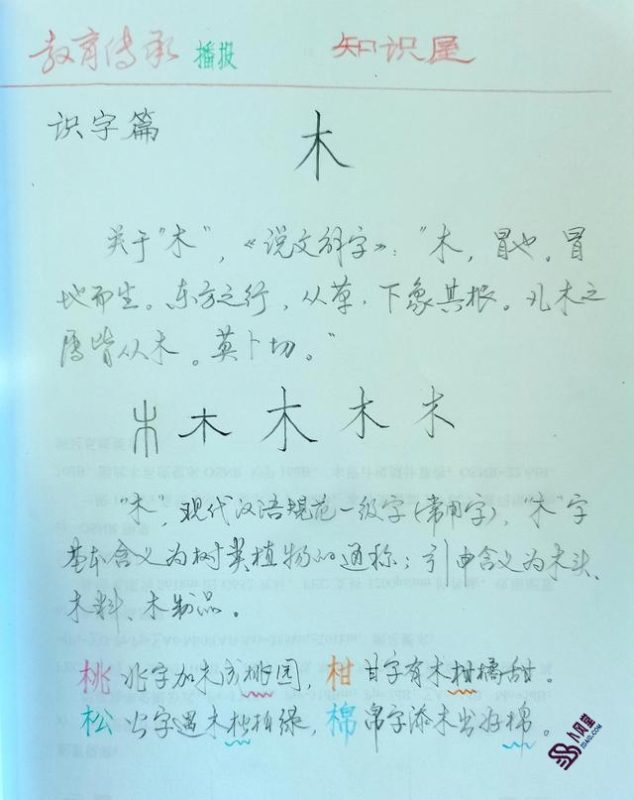 教育传承 播报 知识屋
识字篇 木
关于"木",《说文解字》:"木,冒也。冒
地而生。东方之行,从草,下象其根。凡木之
属皆从木。莫卜切。"
木 木 木 木 木
"木",现代汉语规范一级字(常用字),"木"字
基本含义为树类植物的通称;引申含义为木头、
木料、木制品。
桃 兆字加木成桃园,柑 甘字有木柑橘甜。
松 公字遇木松柏绿,棉 帛字添木出好棉。
人人风堂